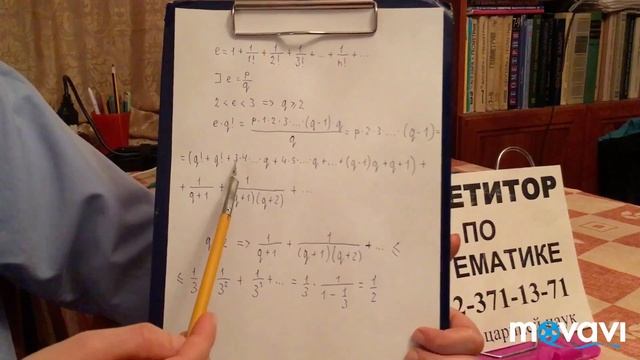 e = 1 + 1/1! + 1/2! + 1/3! + ... + 1/n! + ...
∃ e = p/q
2 < e < 3 => q ⩾ 2
e · q! = p · 1 · 2 · 3 · ... · (q-1) · q / q = p · 2 · 3 · ... · (q-1) =
= (q! + q! + 3·4·...·q + 4·5·...·q + ... + (q-1)q + q + 1) +
+ 1/(q+1) + 1/(q+1)(q+2) + ...
q 2 => 1/(q+1) + 1/(q+1)(q+2) + ... ⩽
⩽ 1/3 + 1/3² + 1/3³ + ... = 1/3 · 1/(1 - 1/3) = 1/2
ЕТИТОР
ПО
ЕМАТИКЕ
2-371-13-71
цариц наук
movavi